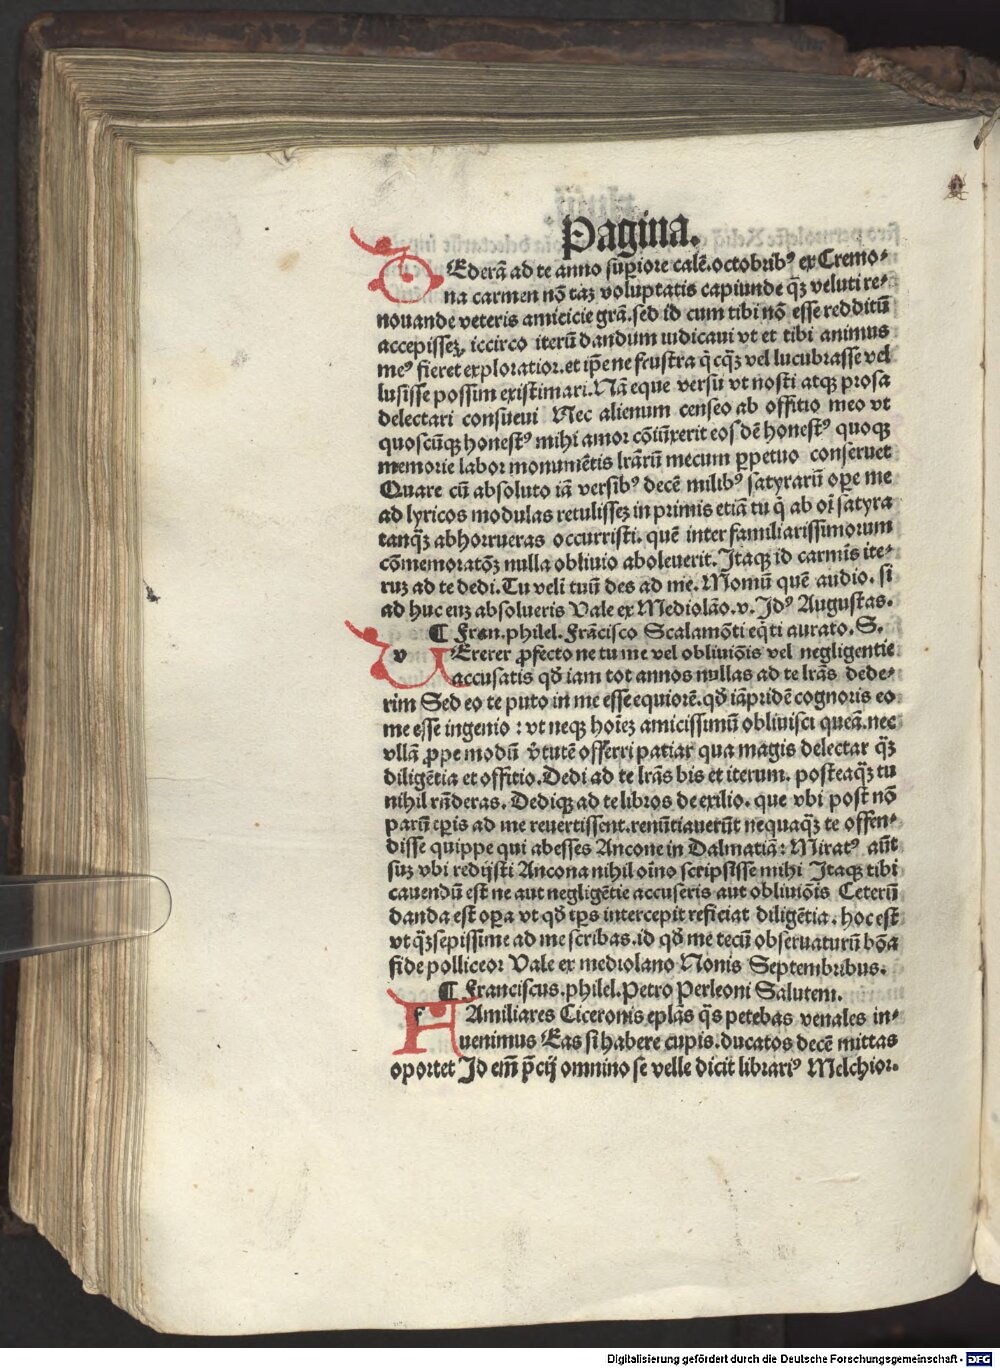 Pagina.
DEderã ad te anno supiore calẽ.octobribꝰ ex Cremo⸗
na carmen nõ tãꝫ voluptatis capiunde q̃ꝫ veluti re⸗
nouande veteris amicicie grã.sed id cum tibi nõ esse redditũ
accepisseꝫ, iccirco iterũ dandum iudicaui vt et tibi animus
meꝰ fieret exploratior.et ip̃e ne frustra q̃cq̃ꝫ vel lucubrasse vel
lusisse possim existimari.Nã eque versu vt nosti atqꝫ prosa
delectari consueui Nec alienum censeo ab offitio meo vt
quoscũqꝫ honestꝰ mihi amor cõiũxerit eosdẽ honestꝰ quoqꝫ
memorie labor monumẽtis lr̃arũ mecum ꝑpetuo conseruet
Quare cũ absoluto iã versibꝰ decẽ milibꝰ satyrarũ oꝑe me
ad lyricos modulas retulisseꝫ in primis etiã tu q̃ ab oĩ satyra
tanq̃ꝫ abhorrueras occurristi. quẽ inter familiarissimorum
cõmemoratõꝫ nulla obliuio aboleuerit.Itaqꝫ id carmĩs ite⸗
ruꝫ ad te dedi.Tu veli tuũ des ad me. Momũ quẽ audio. si
ad huc euꝫ absolueris Vale ex Mediolão.v.Idꝰ Augustas.
¶ Fran.philel.Frãcisco Scalamõti eq̃ti aurato.S.
v VErerer ꝓfecto ne tu me vel obliuiõis vel negligentie
accusatis qð iam tot annos nullas ad te lr̃as dede⸗
rim Sed eo te puto in me esse equiorẽ.qð iãpridẽ cognoris eo
me esse ingenio : vt neqꝫ hoĩeꝫ amicissimũ obliuisci queã.nec
vllã ꝓpe modũ v̾tutẽ offerri patiar qua magis delectar q̃ꝫ
diligẽtia et offitio.Dedi ad te lr̃as bis et iterum. posteaq̃ꝫ tu
nihil rñderas. Dediqꝫ ad te libros de exilio. que vbi post nõ
parũ tꝑis ad me reuertissent.renũtiauerũt nequaq̃ꝫ te offen⸗
disse quippe qui abesses Ancone in Dalmatiã: Miratꝰ aũt
suꝫ vbi redijsti Ancona nihil oĩno scripsisse mihi Itaqꝫ tibi
cauendũ est ne aut negligẽtie accuseris aut obliuiõis Ceterũ
danda est oꝑa vt qð tꝑs intercepit reficiat diligẽtia. hoc est
vt q̃ꝫsepissime ad me scribas.id qð me tecũ obseruaturũ bõa
fide polliceor Vale ex mediolano Nonis Septembribus.
¶ Franciscus.philel.Petro Perleoni Salutem.
f FAmiliares Ciceronis epl̃as q̃s petebas venales in⸗
uenimus Eas si habere cupis.ducatos decẽ mittas
oportet Id em̃ p̃cij omnino se velle dicit librariꝰ Melchior.
Digitalisierung gefördert durch die Deutsche Forschungsgemeinschaft - DFG